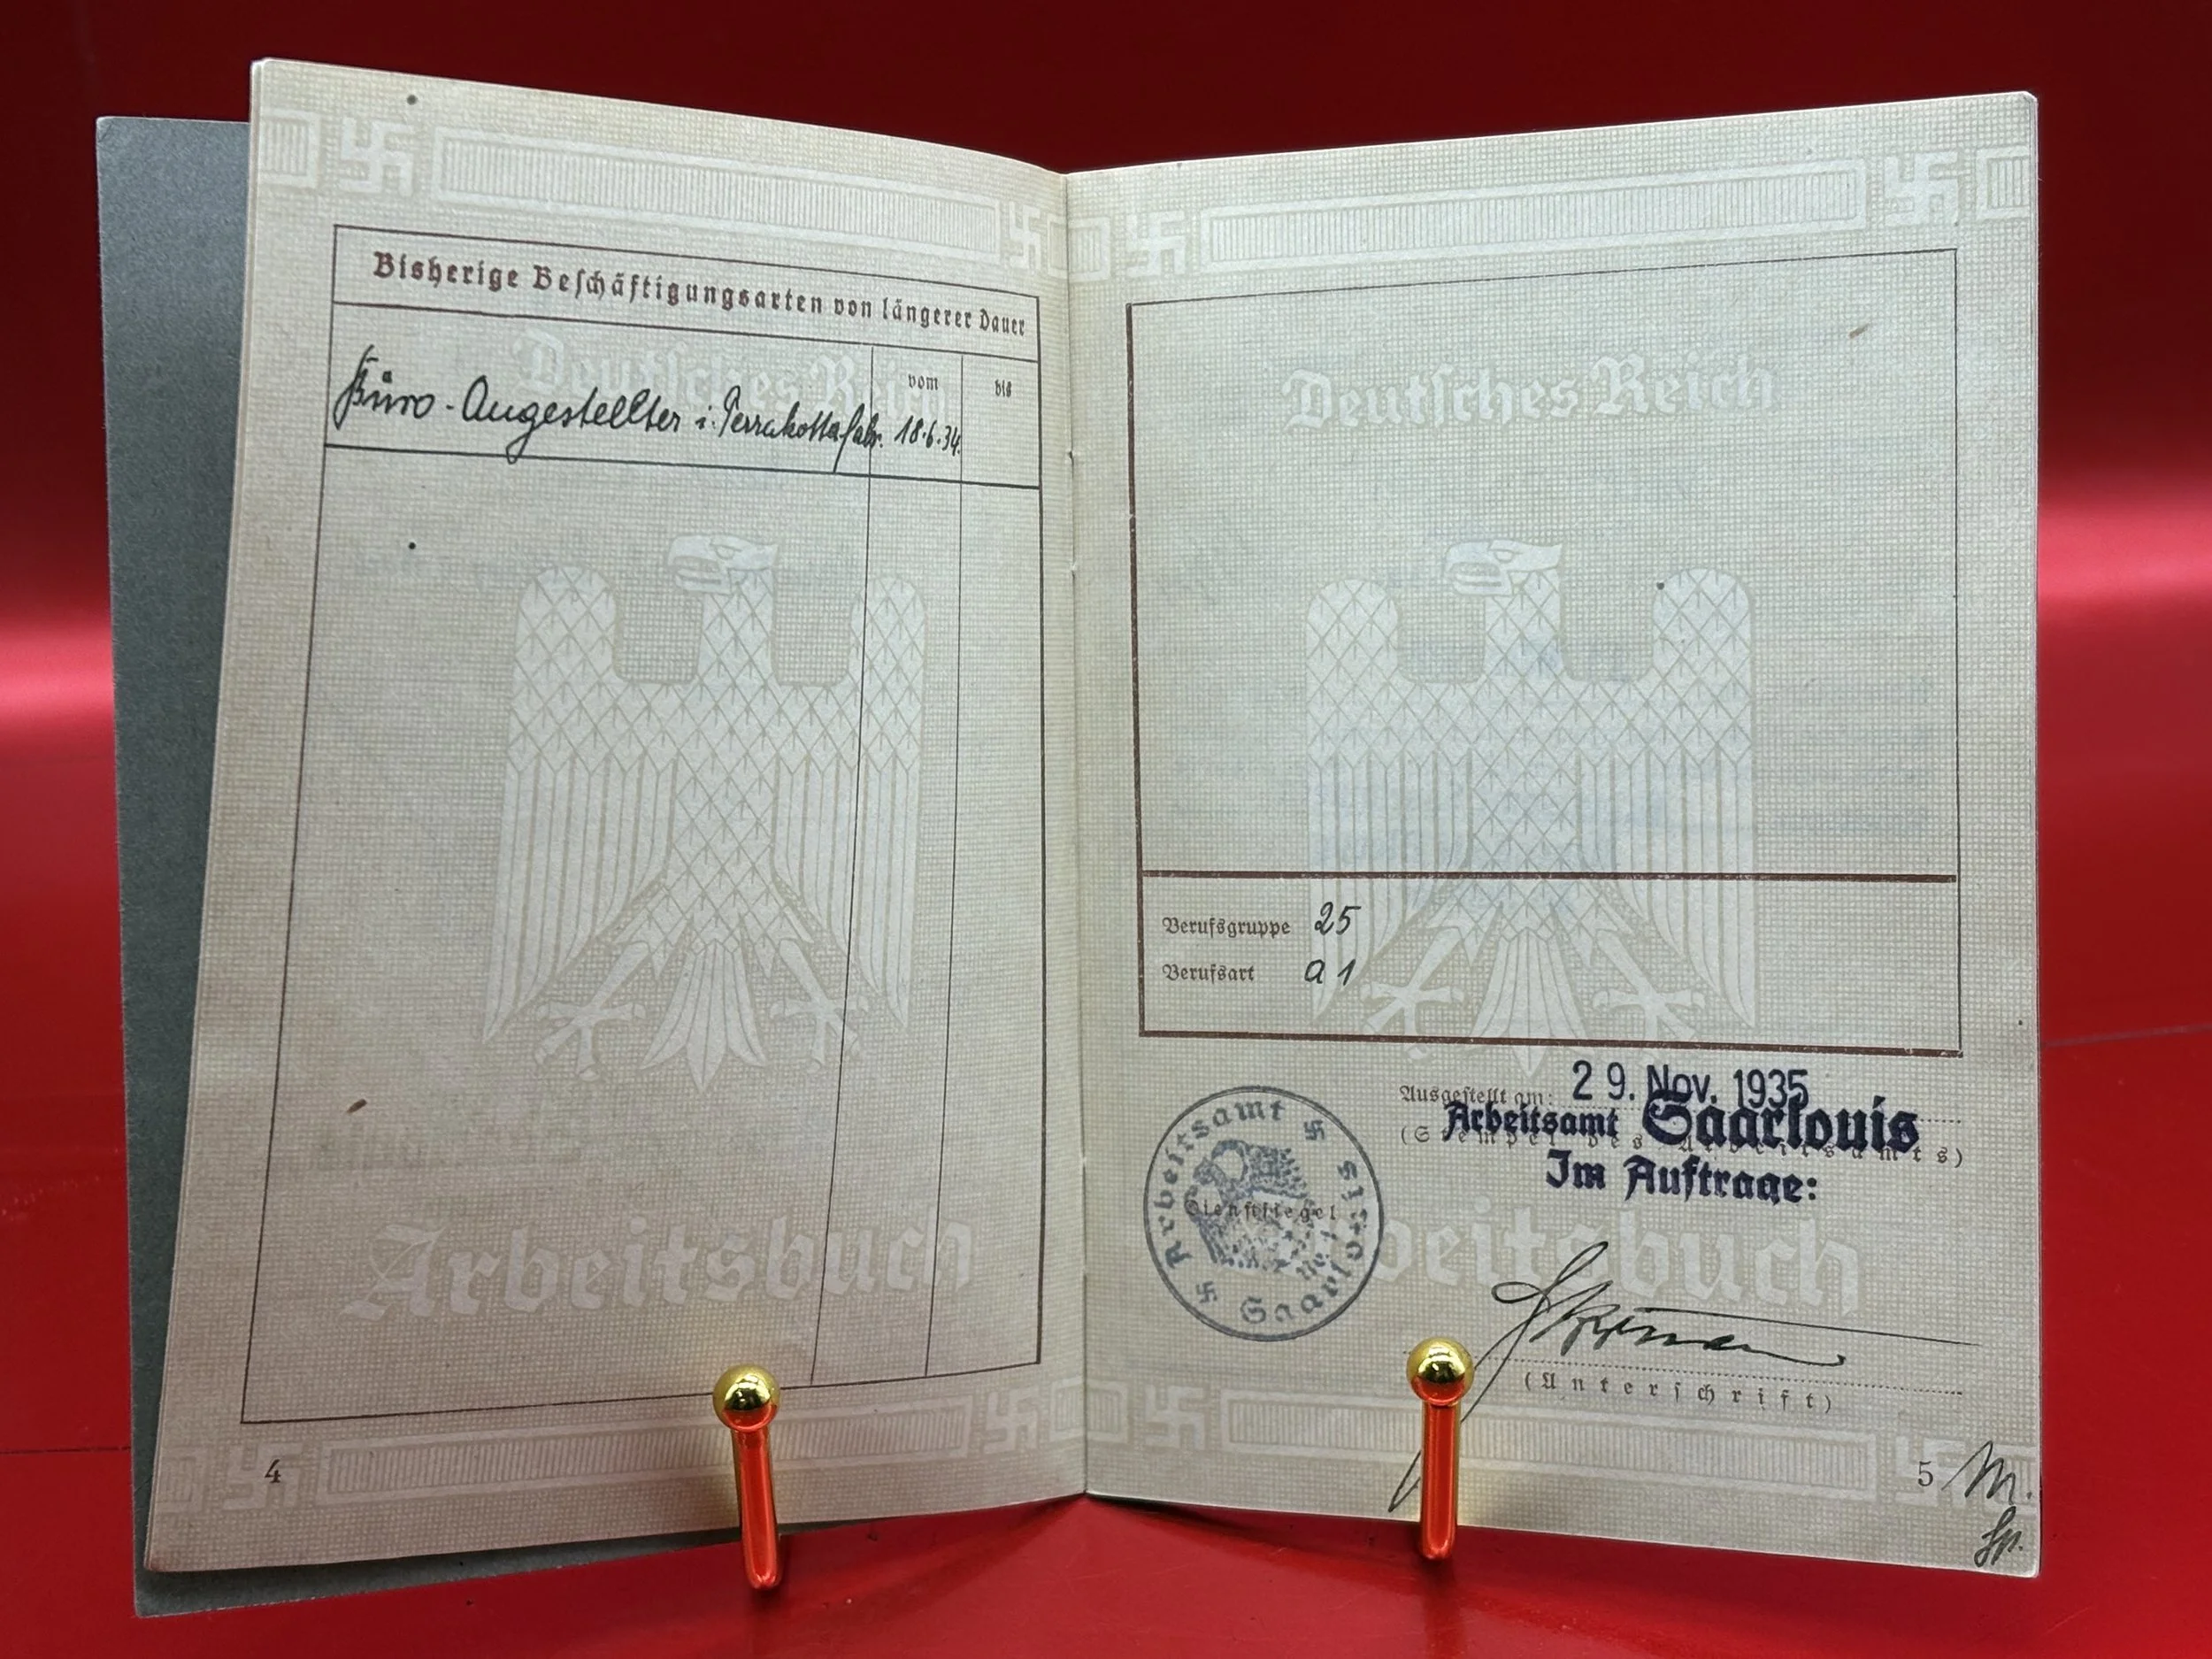 Bisherige Beschäftigungsarten von längerer Dauer
vom bis
Büro-Angestellter i. Terrakottafabr. 18.6.34.
Deutsches Reich
Arbeitsbuch
4
Deutsches Reich
Berufsgruppe 25
Berufsart a 1
Ausgestellt am: 29. Nov. 1935
Arbeitsamt Saarlouis
(Stempel des Arbeitsamts)
Im Auftrage:
Arbeitsamt
Saarlouis
Dienstsiegel
Arbeitsbuch
(Unterschrift)
5 M.